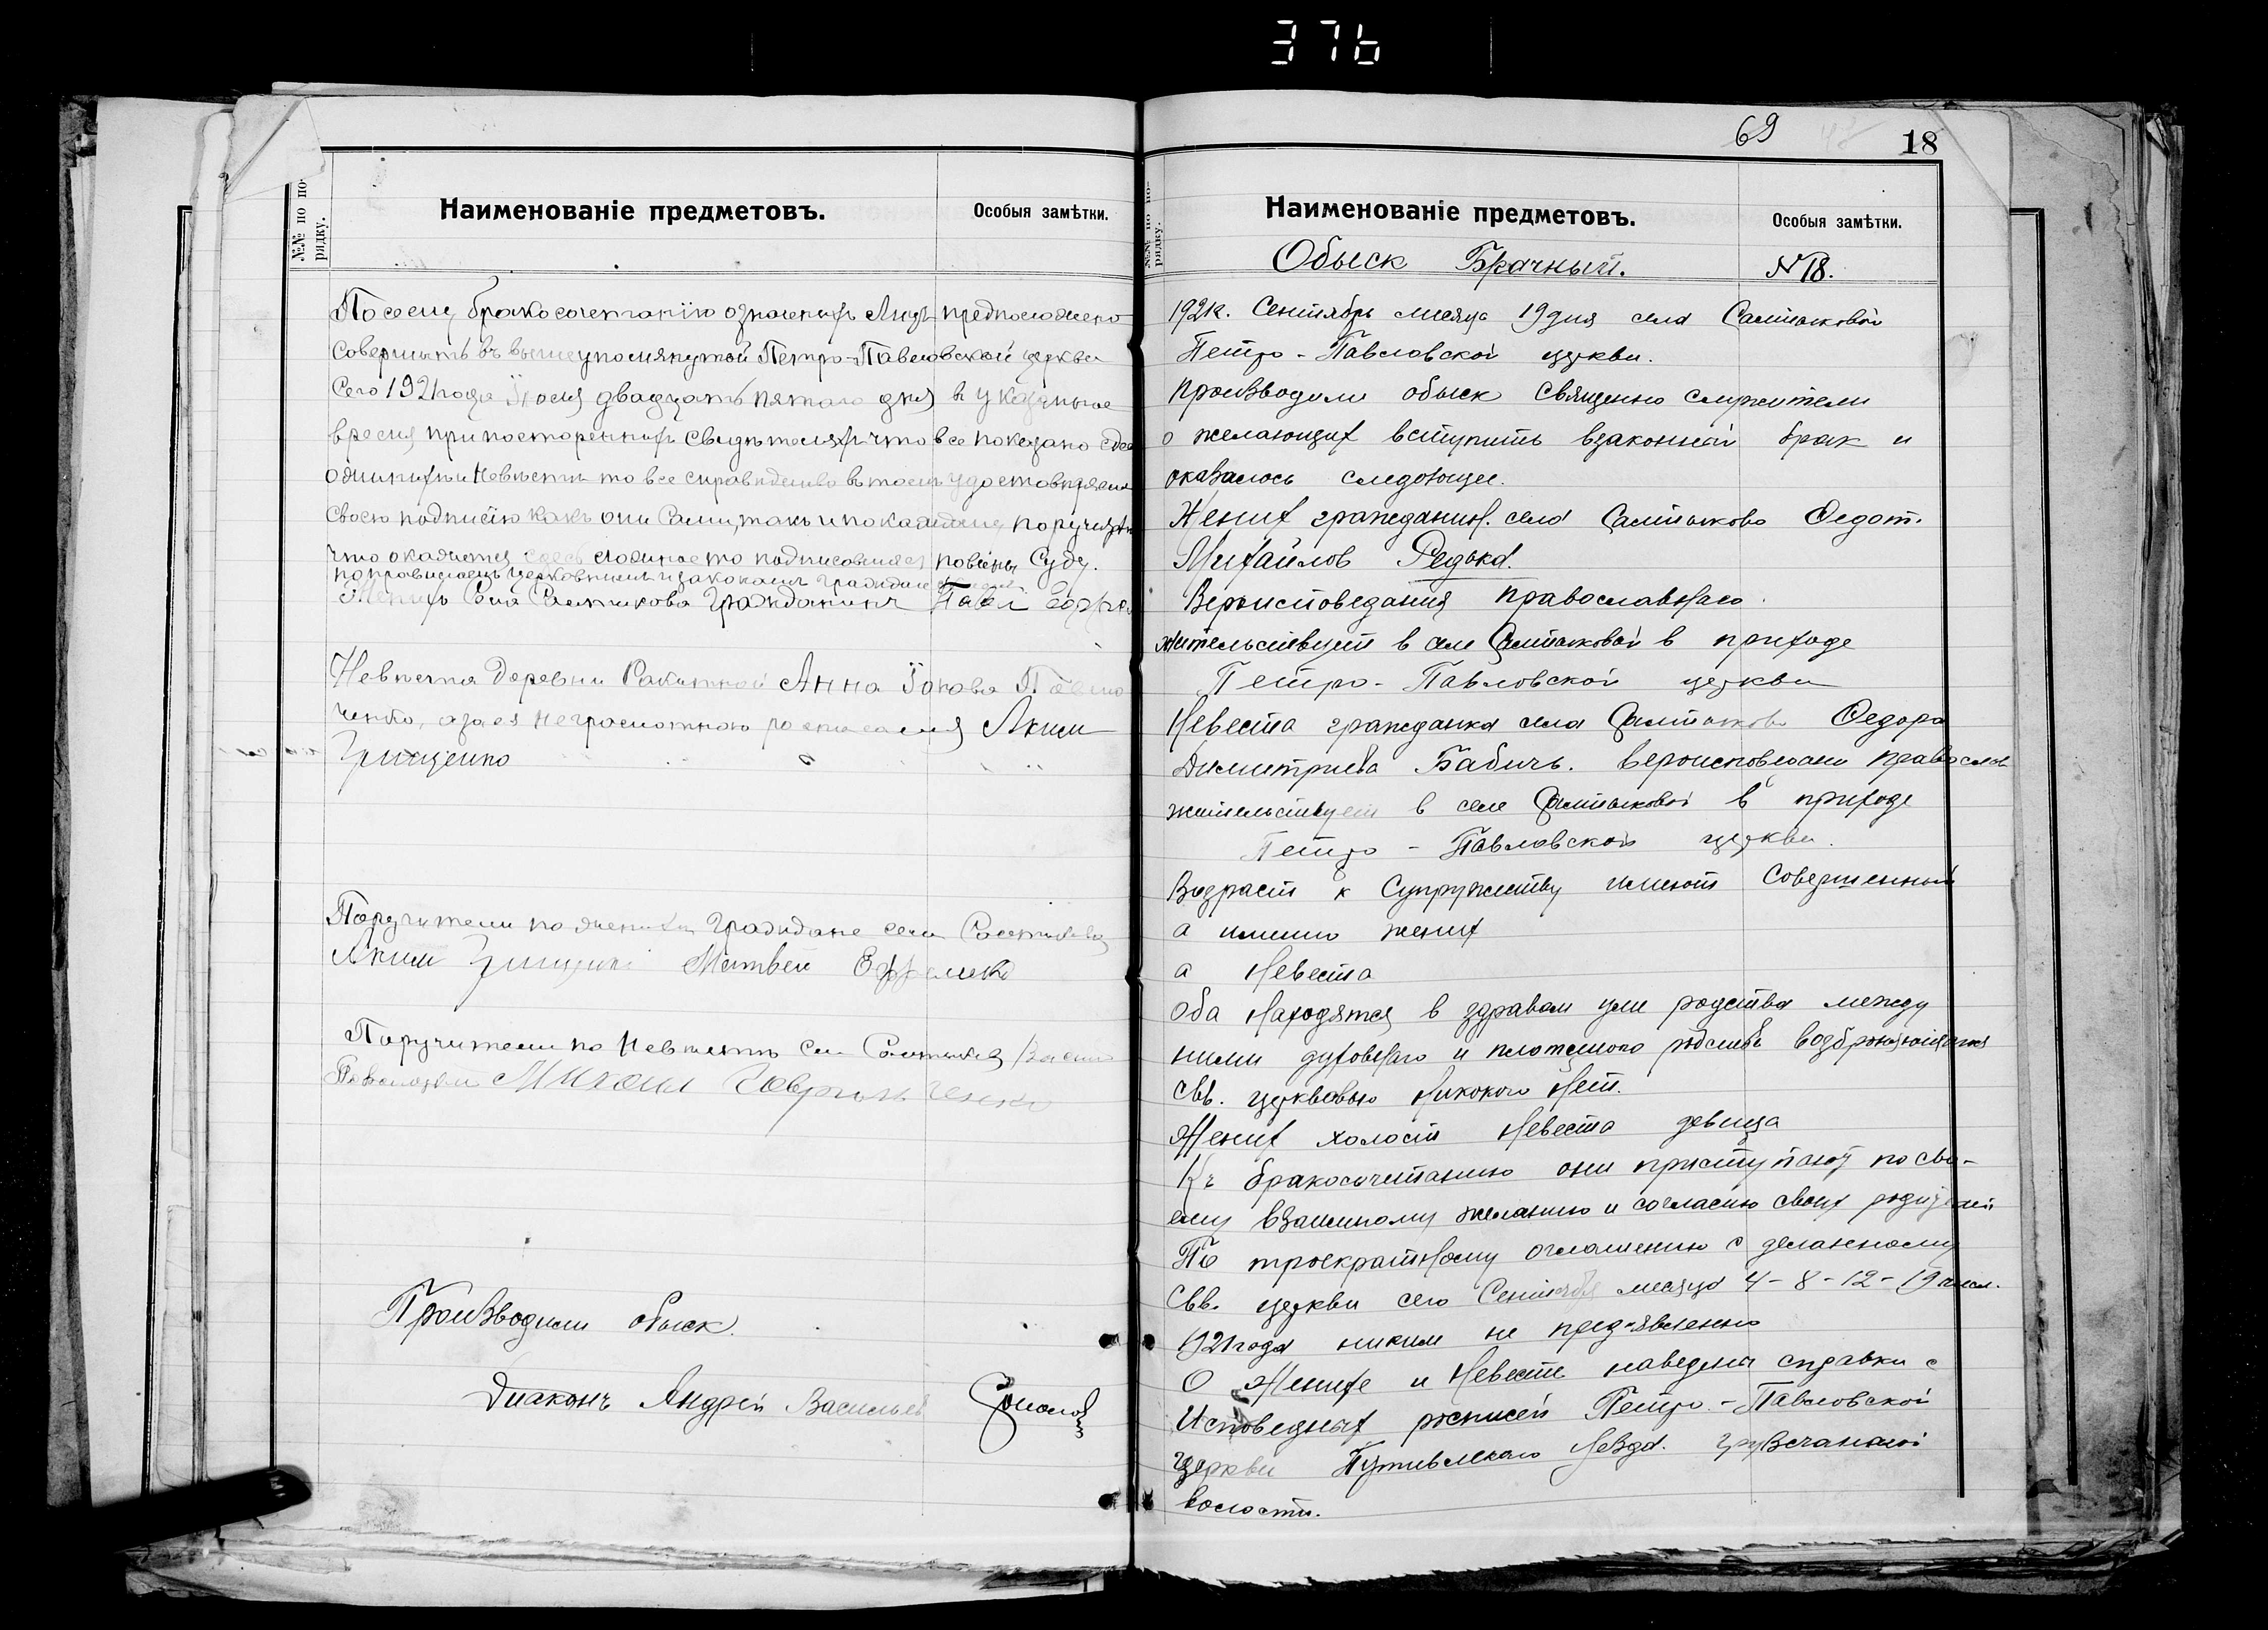 376
№№ по по-
рядку.
Наименованіе предметовъ.
Особыя замѣтки.
По сему бракосочетанію означених Лицъ предположено
Совершить въ вышеупомянутой Петро-Павловской церкви
Сего 1921 года Іюля двадцать пятаго дня в указаное
время при посторенних свидѣтелях что все показано сдес
о женихѣ и Невѣсти то все справидливо в том удостовѣряем
своею подписію какъ они Сами, такъ и по каждому поручители
что окажется здесь ложное то подписовшиеся повіны Суду.
по правилам церковным и законам граждан
Женихъ Села Салтикова Гражданинъ Павел
Невѣста Деревни Ракитной Анна Іакова
аза ея неграмотною росписался Яким
Грищенко
Поручители по женихи Граждане села Салтикова
Яким Грищенко Матвей Ефременко
Поручители по Невѣстѣ села Салтикова
Михаил Гаврильченко
Производили обыск.
Диаконъ Андрей Васильев
69
18
№№ по по-
рядку.
Наименованіе предметовъ.
Особыя замѣтки.
Обыск Брачный.
N 18.
1921г. Сентябрь месяца 19 дня села Салтыковой
Петро-Павловской церкви.
производили обыск священно служители
о желающих вступить взаконный брак и
оказалось следующее.
Жених гражданин. села Салтыково Федот.
Михайлов Редька.
Вероисповедания православнаго.
жительствует в селе Салтыковой в приходе
Петро-Павловской церкви
Невеста гражданка села Салтыково Федора
Димитриева Бабичь. вероисповедани православ
жительствует в селе Салтыковой в приходе
Петро-Павловской церкви.
Возраст к супружеству имеют совершенный
а именно жених
а Невеста
Оба находятся в здравом уме родства между
ними духовнаго и плотскаго родства возброняющагося
свв. церквовью никакого нет.
Жених холост Невеста девица
Къ бракосочетанию они приступают по сво-
ему взаимному желанию и согласию своих родителей
По троекратному оглашению сделанному
Свв. церкви сего Сентября месяца 4-8-12-19 числ.
1921 года никим не предявленно
О Женихе и Невесте наведены справки с
Исповедных росписей Петро-Павловской
Церкви Путивльскаго Уезда. Грузчанской
волости.